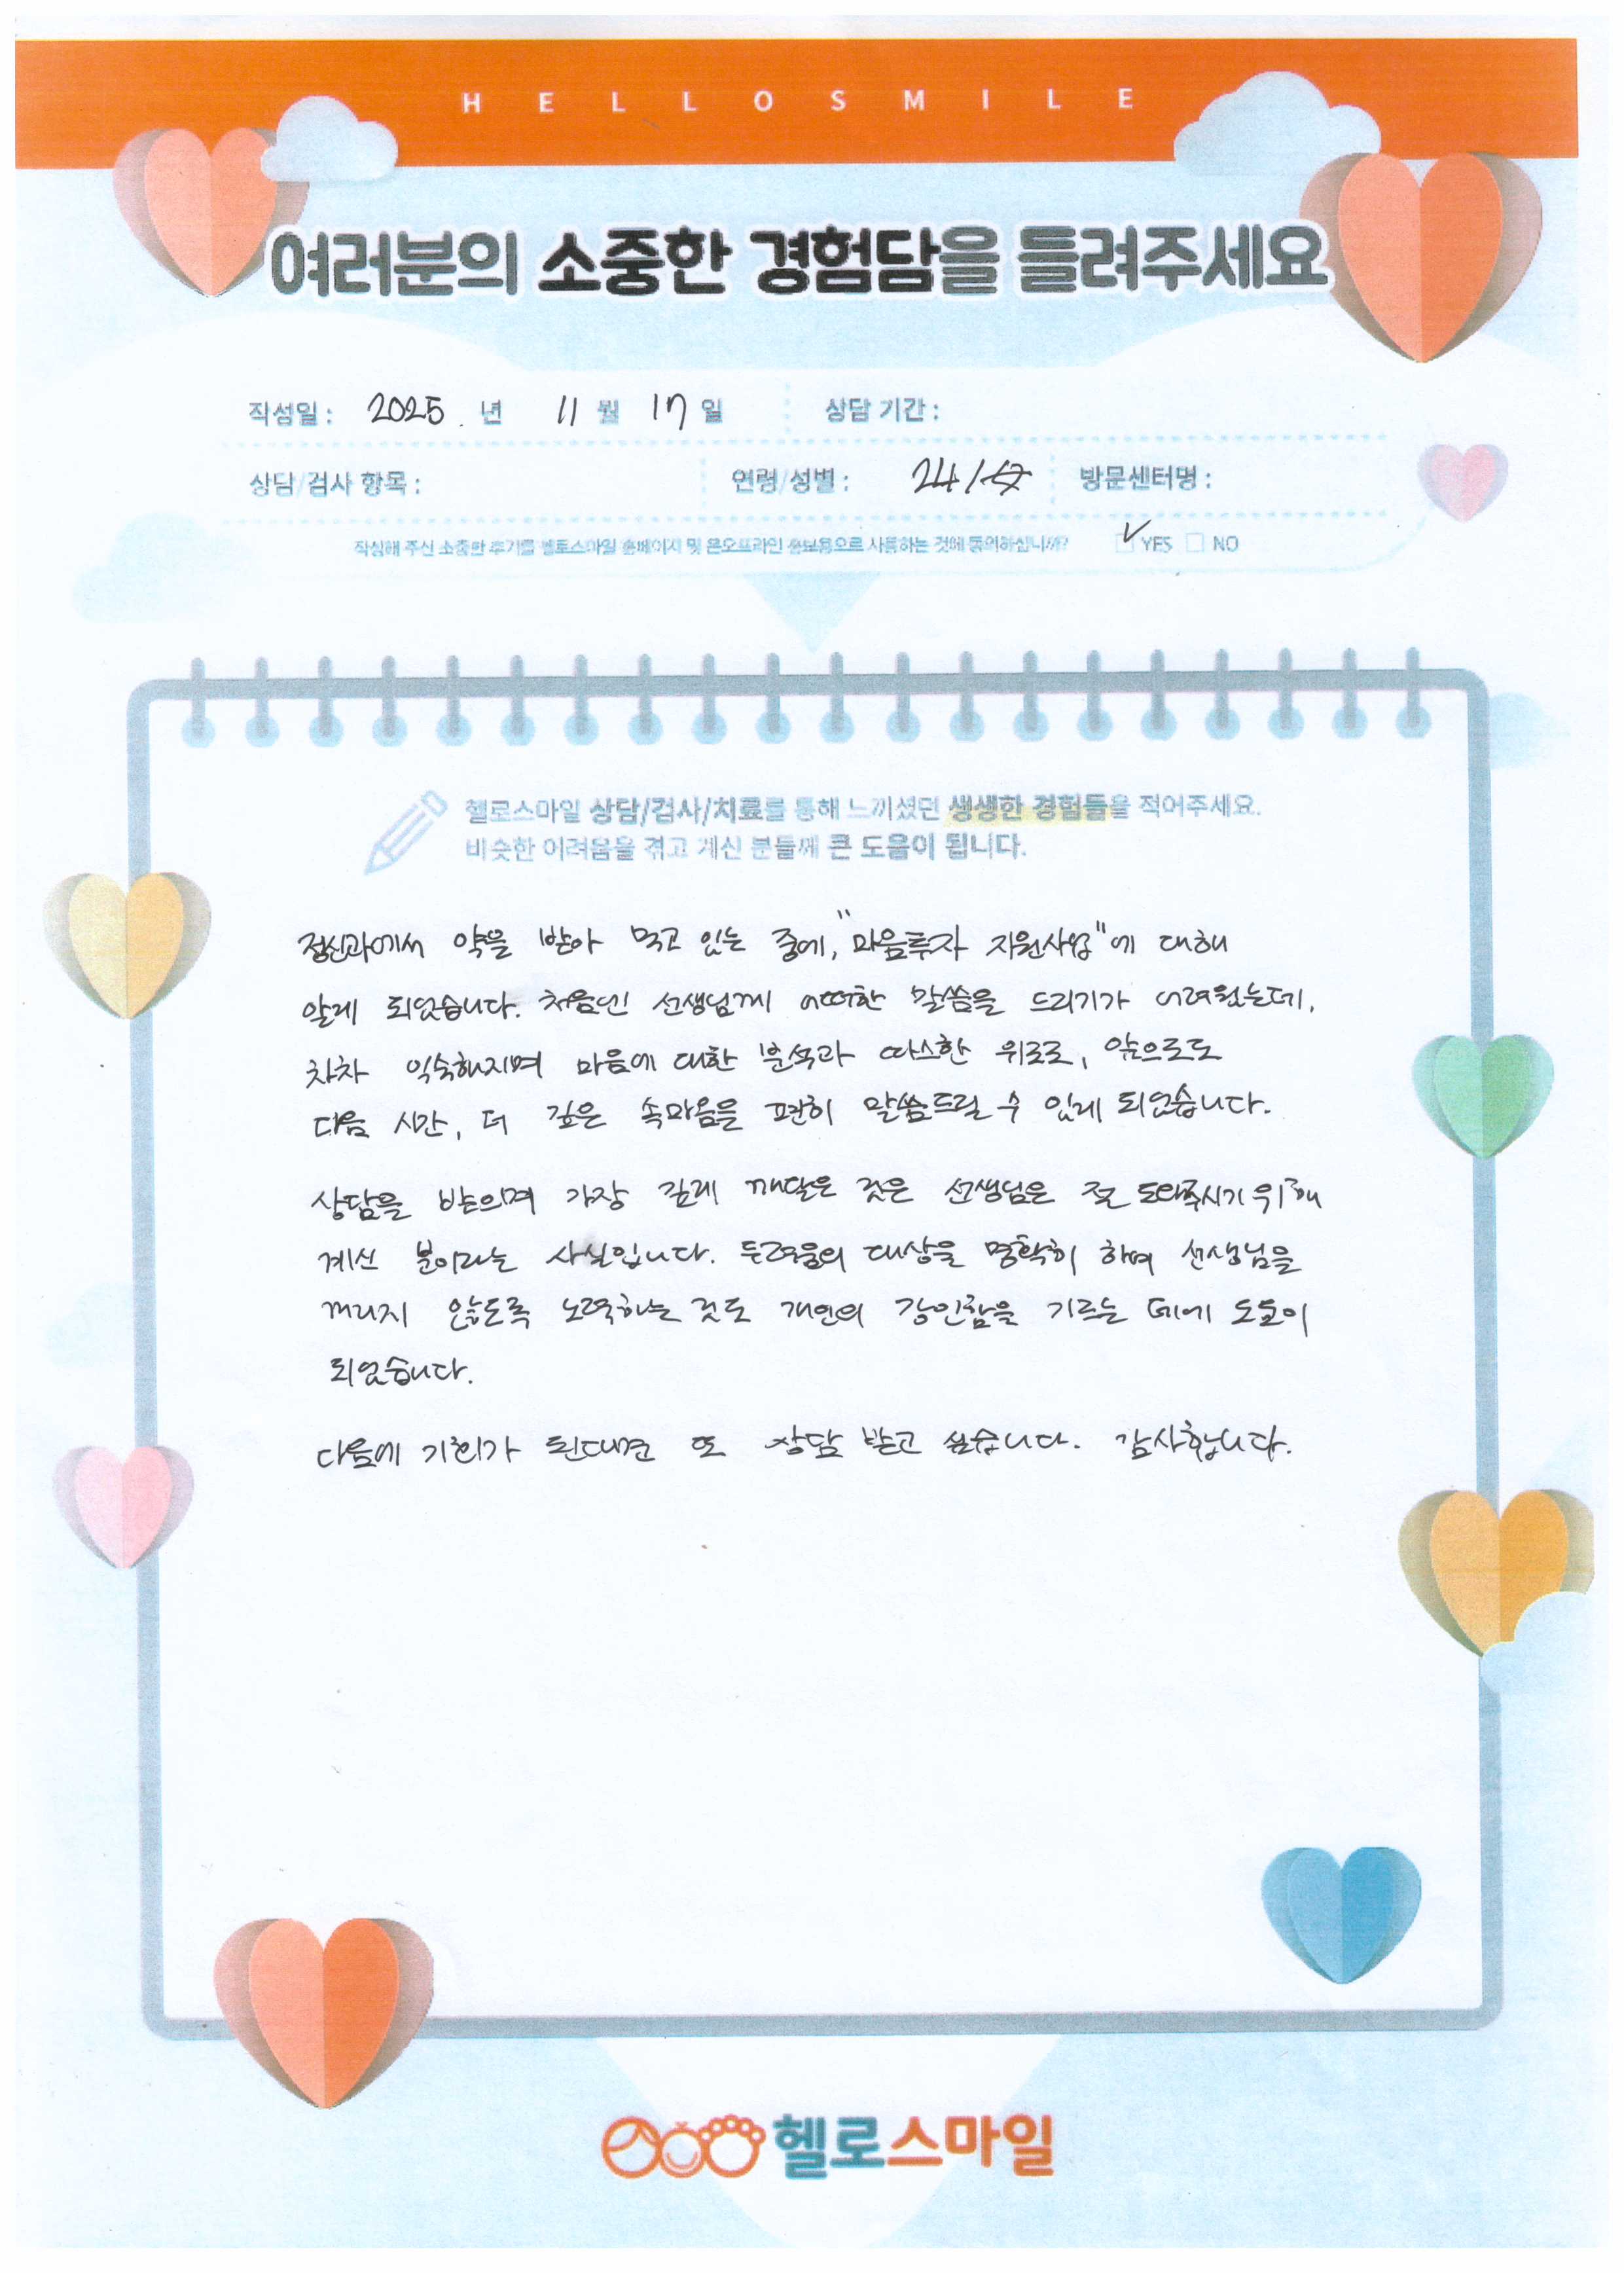 HELLOSMILE
여러분의 소중한 경험담을 들려주세요
작성일 : 2025. 년 11 월 17 일 상담 기간 :
상담/검사 항목 : 연령/성별 : 24/女 방문센터명 :
작성해 주신 소중한 후기를 헬로스마일 홈페이지 및 온오프라인 홍보용으로 사용하는 것에 동의하십니까? ✓ YES □ NO
헬로스마일 상담/검사/치료를 통해 느끼셨던 생생한 경험들을 적어주세요.
비슷한 어려움을 겪고 계신 분들께 큰 도움이 됩니다.
정신과에서 약을 받아 먹고 있는 중에, "마음투자 지원사업"에 대해
알게 되었습니다. 처음엔 선생님께 어떠한 말씀을 드리기가 어려웠는데,
차차 익숙해지며 마음에 대한 분석과 따스한 위로로, 앞으로도
다음 시간, 더 깊은 속마음을 편히 말씀드릴 수 있게 되었습니다.
상담을 받으며 가장 깊게 깨달은 것은 선생님은 절 도와주시기 위해
계신 분이라는 사실입니다. 두려움의 대상을 명확히 하여 선생님을
꺼리지 않도록 노력하는 것도 개인의 강인함을 기르는 데에 도움이
되었습니다.
다음에 기회가 된다면 또 상담 받고 싶습니다. 감사합니다.
헬로스마일